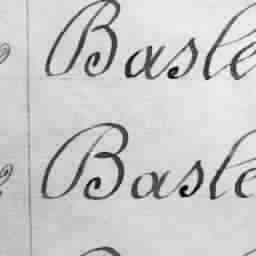 Basle
Basle